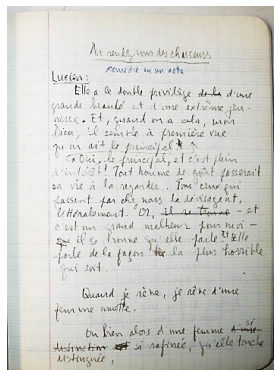 Au rendez-vous des chasseurs
comédie en un acte
Lucien :
Elle a le double privilège de la d'une
grande beauté et d'une extrême jeu-
nesse. Et, quand on a cela, mon
Dieu, il semble à première vue
qu'on ait le principal.
Oui, le principal, et c'est plein
d'intérêt ! Tout homme de goût passerait
sa vie à la regarder. Tous ceux qui
passent par chez nous la dévisagent,
littéralement. Or, il se trouve - et
c'est un grand malheur pour moi -
il se trouve qu'elle parle. Et elle
parle de la façon la plus horrible
qui soit.
Quand je rêve, je rêve d'une
femme muette.
Ou bien alors d'une femme d'une si
distinction si raffinée, qu'elle touche
distinguée,